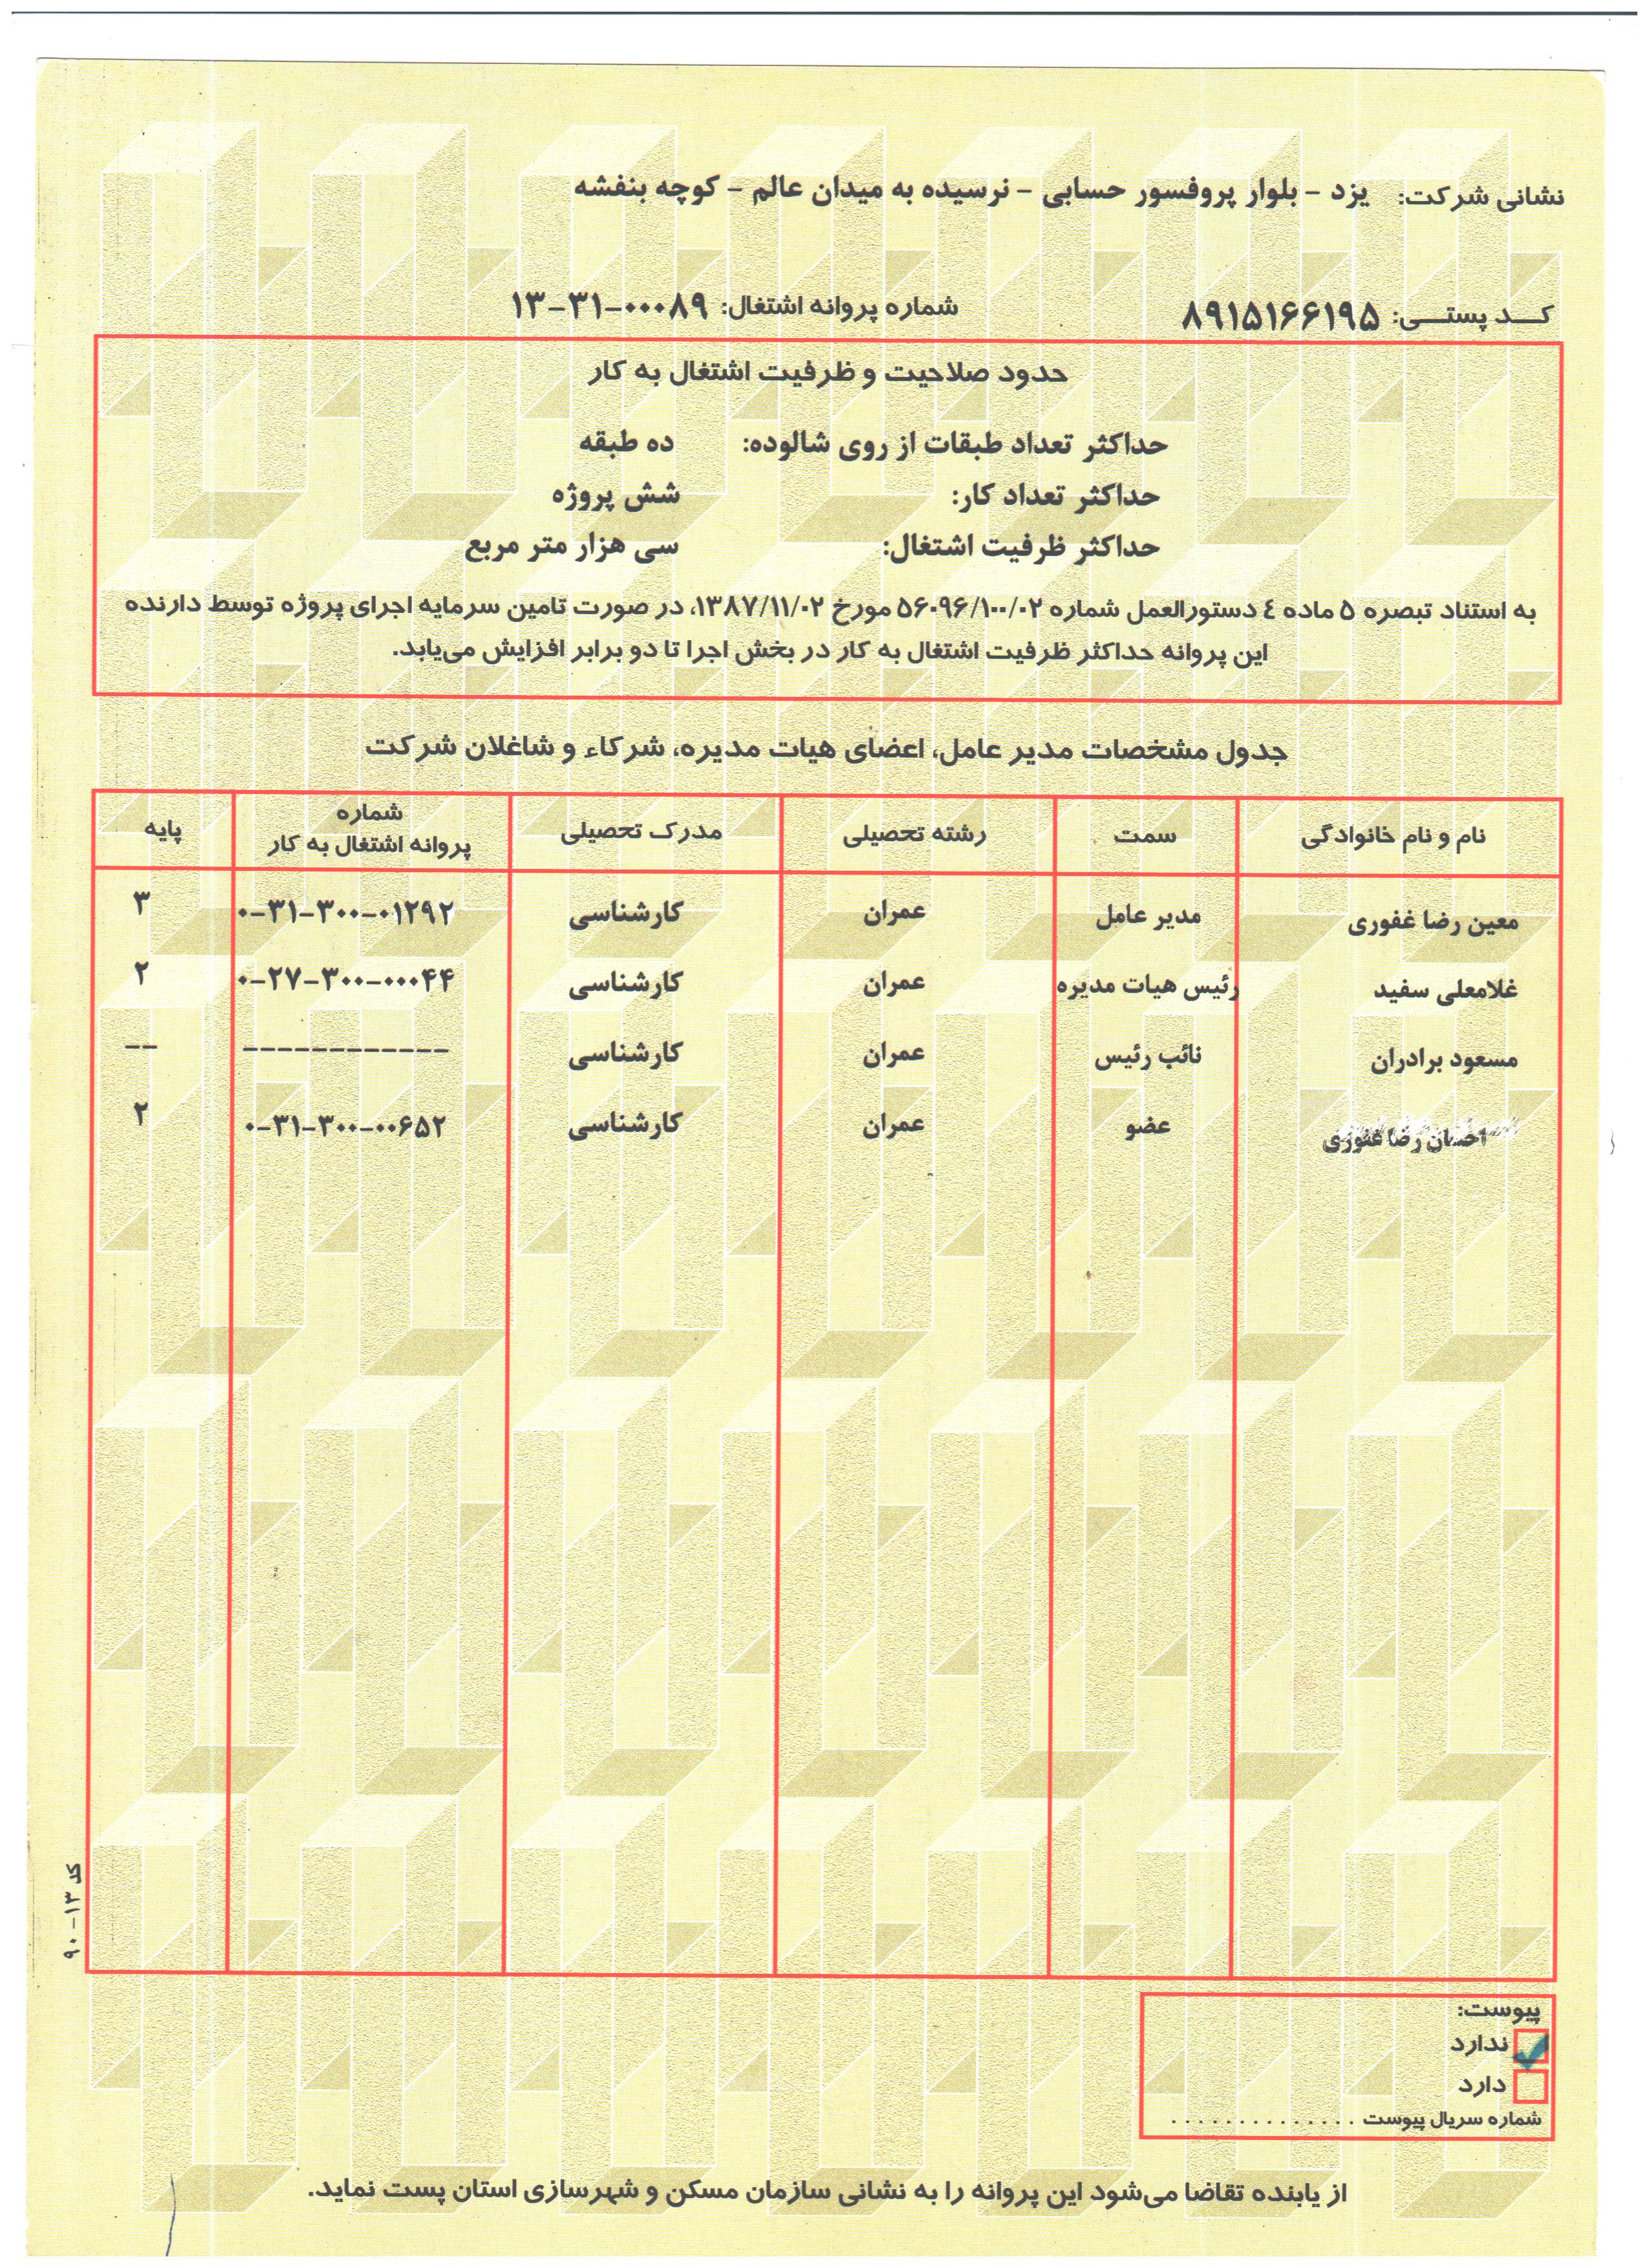 نشانی شرکت: یزد - بلوار پروفسور حسابی - نرسیده به میدان عالم - کوچه بنفشه
کد پستی: ۸۹۱۵۱۶۶۱۹۵ شماره پروانه اشتغال: ۱۳-۳۱-۰۰۰۸۹
حدود صلاحیت و ظرفیت اشتغال به کار
حداکثر تعداد طبقات از روی شالوده: ده طبقه
حداکثر تعداد کار: شش پروژه
حداکثر ظرفیت اشتغال: سی هزار متر مربع
به استناد تبصره ۵ ماده ٤ دستورالعمل شماره ۵۶۰۹۶/۱۰۰/۰۲ مورخ ۱۳۸۷/۱۱/۰۲، در صورت تامین سرمایه اجرای پروژه توسط دارنده
این پروانه حداکثر ظرفیت اشتغال به کار در بخش اجرا تا دو برابر افزایش می‌یابد.
جدول مشخصات مدیر عامل، اعضای هیات مدیره، شرکاء و شاغلان شرکت
نام و نام خانوادگی سمت رشته تحصیلی مدرک تحصیلی شماره پروانه اشتغال به کار پایه
معین رضا غفوری مدیر عامل عمران کارشناسی ۰-۳۱-۳۰۰-۰۱۲۹۲ ۳
غلامعلی سفید رئیس هیات مدیره عمران کارشناسی ۰-۲۷-۳۰۰-۰۰۰۴۴ ۲
مسعود برادران نائب رئیس عمران کارشناسی ------------ --
احسان رضا غفوری عضو عمران کارشناسی ۰-۳۱-۳۰۰-۰۰۶۵۲ ۲
کد ۱۳-۹۰
پیوست:
ندارد
دارد
شماره سریال پیوست ..............
از یابنده تقاضا می‌شود این پروانه را به نشانی سازمان مسکن و شهرسازی استان پست نماید.